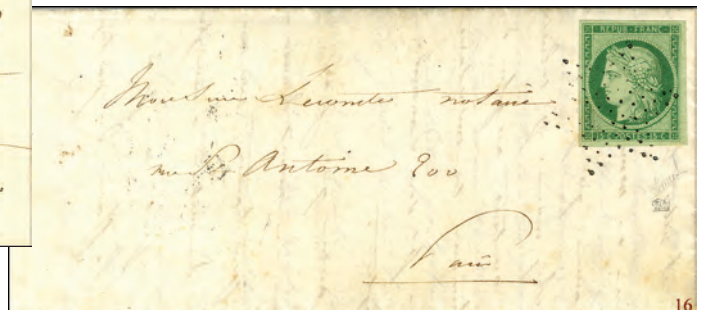 REPUB·FRANC
15·C·POSTES·15·C
Monsieur Lecomte notaire
rue St Antoine 200
Paris
16